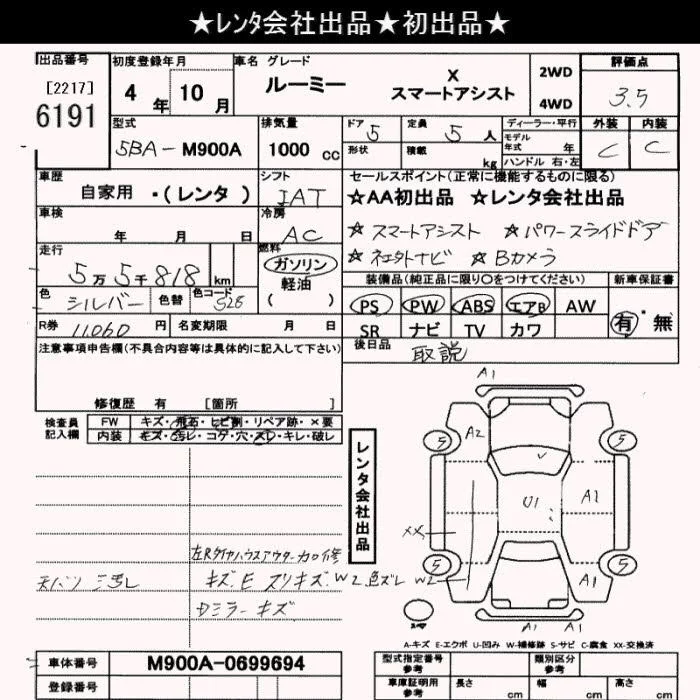 ★レンタ会社出品★初出品★
出品番号 初度登録年月 車名 グレード 評価点
[2217]
6191
4 年 10 月
ルーミー X
スマートアシスト
2WD
4WD
3.5
型式 排気量 ドア 定員 ディーラー・平行 外装 内装
5BA-M900A 1000 cc 5 5 人 モデル年式 年 C C
形状 積載 kg ハンドル 右・左
車歴 シフト セールスポイント(正常に機能するものに限る)
自家用 ・(レンタ ) IAT ★AA初出品 ★レンタ会社出品
車検 冷房
年 月 日 AC ☆スマートアシスト ☆パワースライドドア
走行 燃料 ☆社外ナビ ☆Bカメラ
5万5千818 km ガソリン
軽油
( )
装備品(純正品に限り○をつけてください) 新車保証書
色 シルバー 色替 色コード S28
PS PW ABS エアB AW 有・無
SR ナビ TV カワ
R券 11,060 円 名変期限 月 日
後日品 取説
注意事項申告欄(不具合内容等は具体的に記入して下さい)
修復歴 有 [箇所 ]
検査員記入欄
FW キズ・飛石・ヒビ割・リペア跡・×要
内装 キズ・汚レ・コゲ・穴・スレ・キレ・破レ
レンタ会社出品
A1
A2
5 5
U1
A2
XX
5 5
A1
W2
A1 A1
左Rタイヤハウスアウター加修
キズ.E スリキズ.W2 色ズレ
天バリ ミ汚レ
ミラーキズ
A-キズ E-エクボ U-凹み W-補修跡 S-サビ C-腐食 XX-交換済
車体番号 M900A-0699694
登録番号
型式指定番号 参考 類別区分 参考
車庫証明用 参考 長さ cm 幅 cm 高さ cm